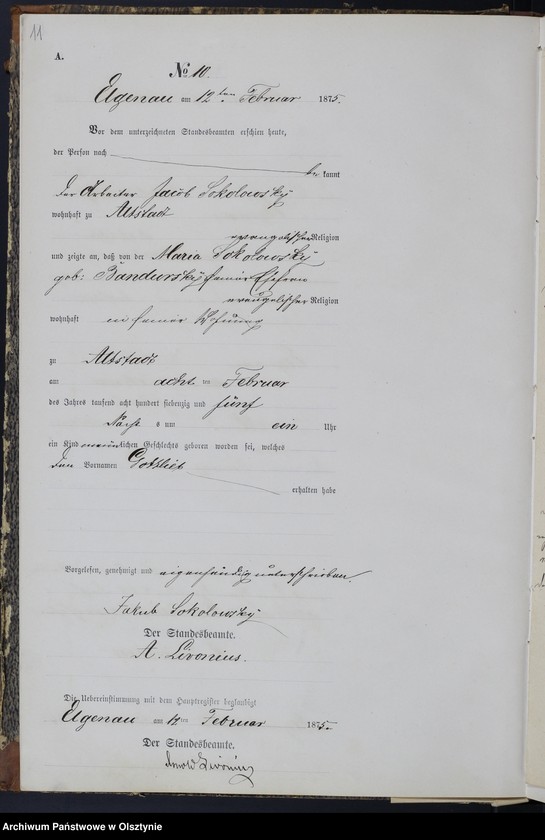 11
A.
No 10.
Elgenau am 12ten Februar 1875.
Vor dem unterzeichneten Standesbeamten erschien heute,
der Person nach
be kannt
der Arbeiter Jacob Sokolowsky
wohnhaft zu Altstadt
evangelischer Religion
und zeigte an, daß von der Maria Sokolowsky
geb: Bandursky seiner Ehefrau
evangelischer Religion
wohnhaft in seiner Wohnung
zu Altstadt
am acht ten Februar
des Jahres tausend acht hundert siebenzig und fünf
Nacht s um ein Uhr
ein Kind männlichen Geschlechts geboren worden sei, welches
den Vornamen Gottlieb
erhalten habe
Vorgelesen, genehmigt und eigenhändig unterschrieben.
Jakub Sokolowsky
Der Standesbeamte.
A. Livonius.
Die Uebereinstimmung mit dem Hauptregister beglaubigt
Elgenau am 12ten Februar 1875.
Der Standesbeamte.
Arnold Livonius
Archiwum Państwowe w Olsztynie